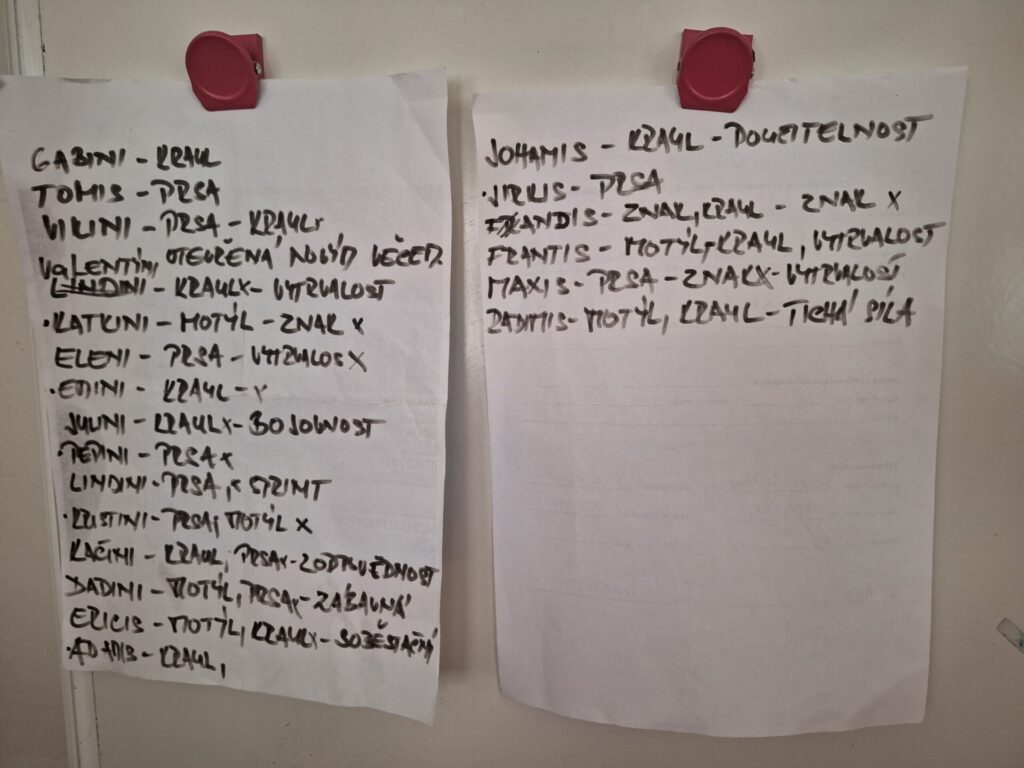 GABINI - KRAUL
TOMIS - PRSA
VIKINI - PRSA - KRAULx
VALENTÝNI, OTEVŘENÁ NOVÝM VĚCEM.
LINDINI - KRAULX - VYTRVALOST
·KATKINI - MOTÝL - ZNAK X
ELENI - PRSA - VYTRVALOS X
·EMINI - KRAUL - X
JULINI - KRAULX - BOJOVNOST
·PEPINI - PRSA X
LINDINI - PRSA, X SPRINT
·KRISTINI - PRSA, MOTÝL X
KAČINI - KRAUL, PRSAX - ZODPOVĚDNOST
DADINI - MOTÝL, PRSAX - ZÁBAVNÁ
ERICIS - MOTÝL, KRAULX - SOBĚSTAČNÝ
·ADAMIS - KRAUL,
JOHAMIS - KRAUL - DOUČITELNOST
·JIRKIS - PRSA
FRANDIS - ZNAK, KRAUL - ZNAK X
FRANTIS - MOTÝL, KRAUL, VYTRVALOST
MAXIS - PRSA - ZNAKX - VYTRVALOST
RADIMIS - MOTÝL, KRAUL - TICHÁ SÍLA